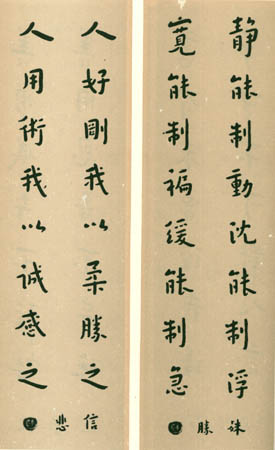 静能制動沈能制浮
寬能制褊緩能制急
殊勝
人好剛我以柔勝之
人用術我以誠感之
信悲